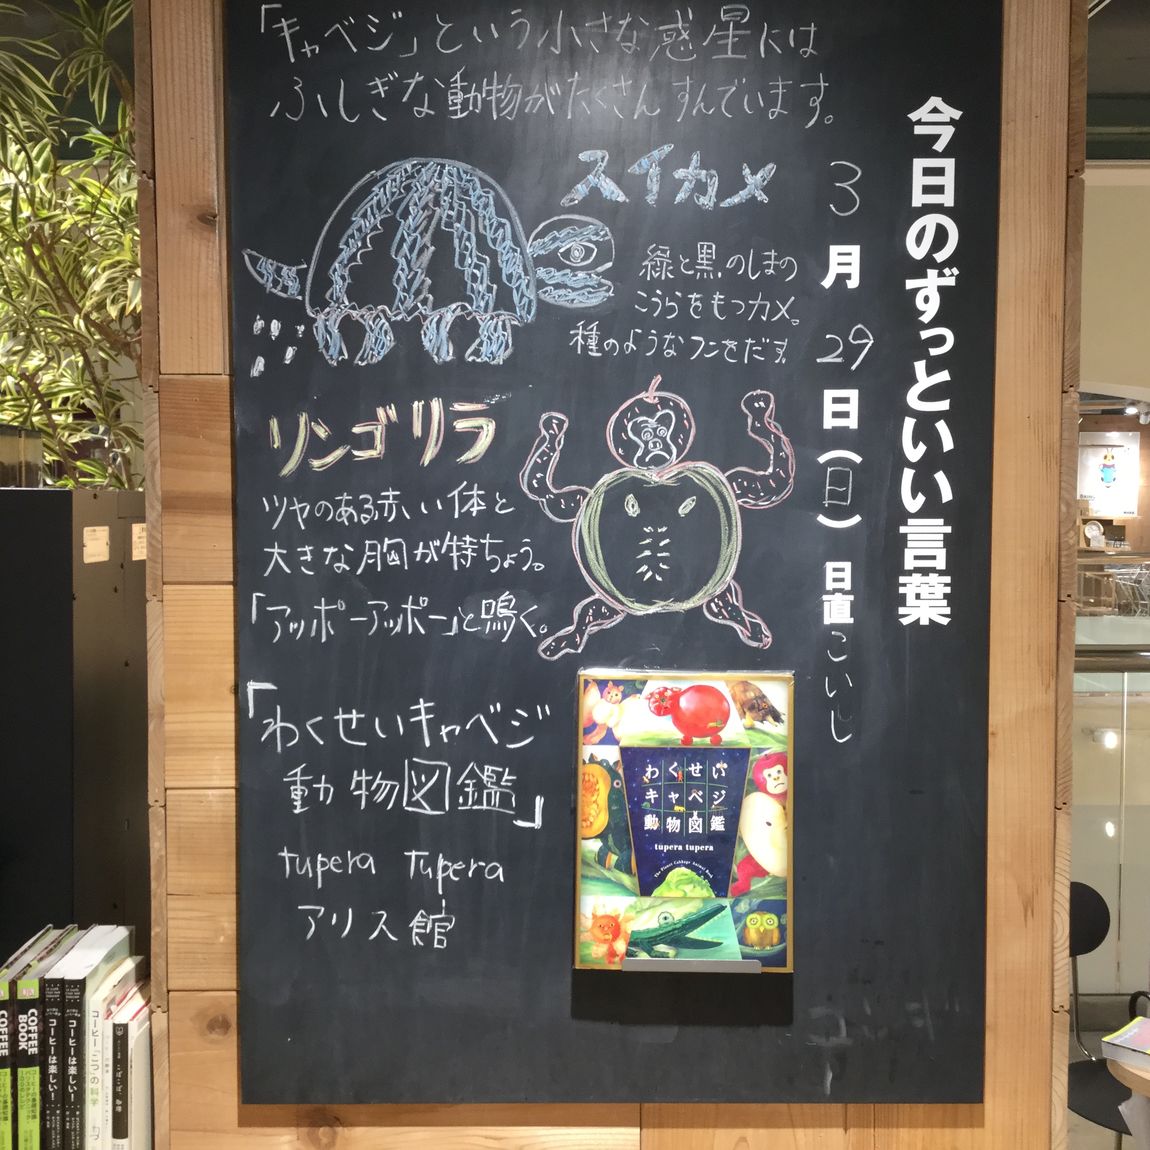 「キャベジ」という小さな惑星には
ふしぎな動物がたくさんすんでいます。
今日のずっといい言葉
3月29日(日) 日直 こいし
スイカメ
緑と黒のしまの
こうらをもつカメ。
種のようなフンをだす
リンゴリラ
ツヤのある赤い体と
大きな胸が特ちょう。
「アッポーアッポー」と鳴く。
「わくせいキャベジ
動物図鑑」
tupera tupera
アリス館
わくせい
キャベジ
動物図鑑
tupera tupera
The Planet Cabbage Animal Book
COFFEE
COFFEE BOOK
コーヒーは楽しい!
コーヒーは楽しい!
コーヒー「こつ」の科学